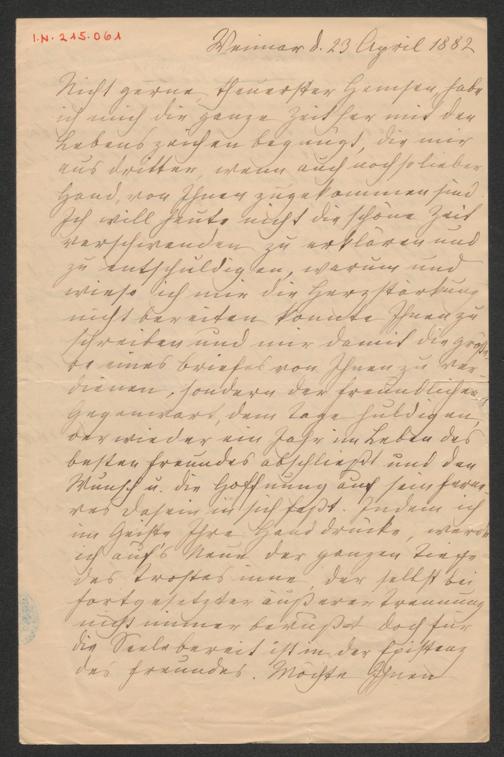 I.N. 215.061
Weimar d. 23 April 1882
Nicht gerne, theuerster Hemsen, habe
ich mich die ganze Zeit her mit den
Lebenszeichen begnügt, die mir
aus dritter, wenn auch noch so lieber
Hand, von Ihnen zugekommen sind
Ich will heute nicht die schöne Zeit
verschwenden zu erklären und
zu entschuldigen, warum und
wieso ich mir die Herzstärkung
nicht bereiten konnte Ihnen zu
schreiben und mir damit die
eines Briefes von Ihnen zu ver-
dienen, sondern der freundlichen
Gegenwart, dem Tage huldigen,
der wieder ein Jahr im Leben des
besten Freundes abschließt und den
Wunsch u. die Hoffnung auf sein ferne-
res Dasein in sich faßt. Indem ich
im Geiste Ihre Hand drücke, werde
ich auf's Neue der ganzen Tiefe
des Trostes inne, der selbst bei
fortgesetzter äußerer Trennung
nicht immer bewußt doch für
die Seele bereit ist in der Existenz
des Freundes. Möchte Ihnen